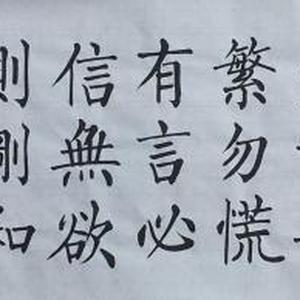 繁勿慌
有言必
信無欲
則剛和